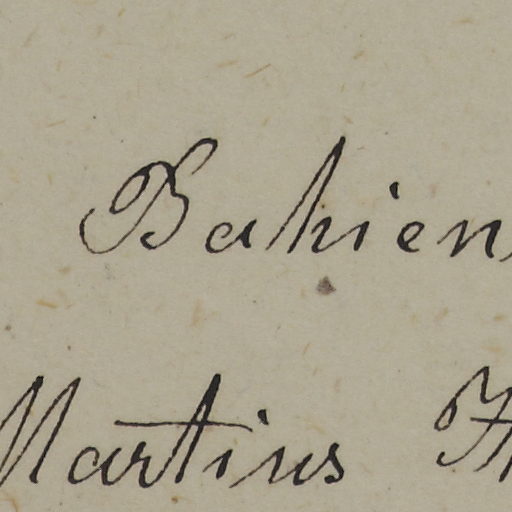 Bahien
Martius